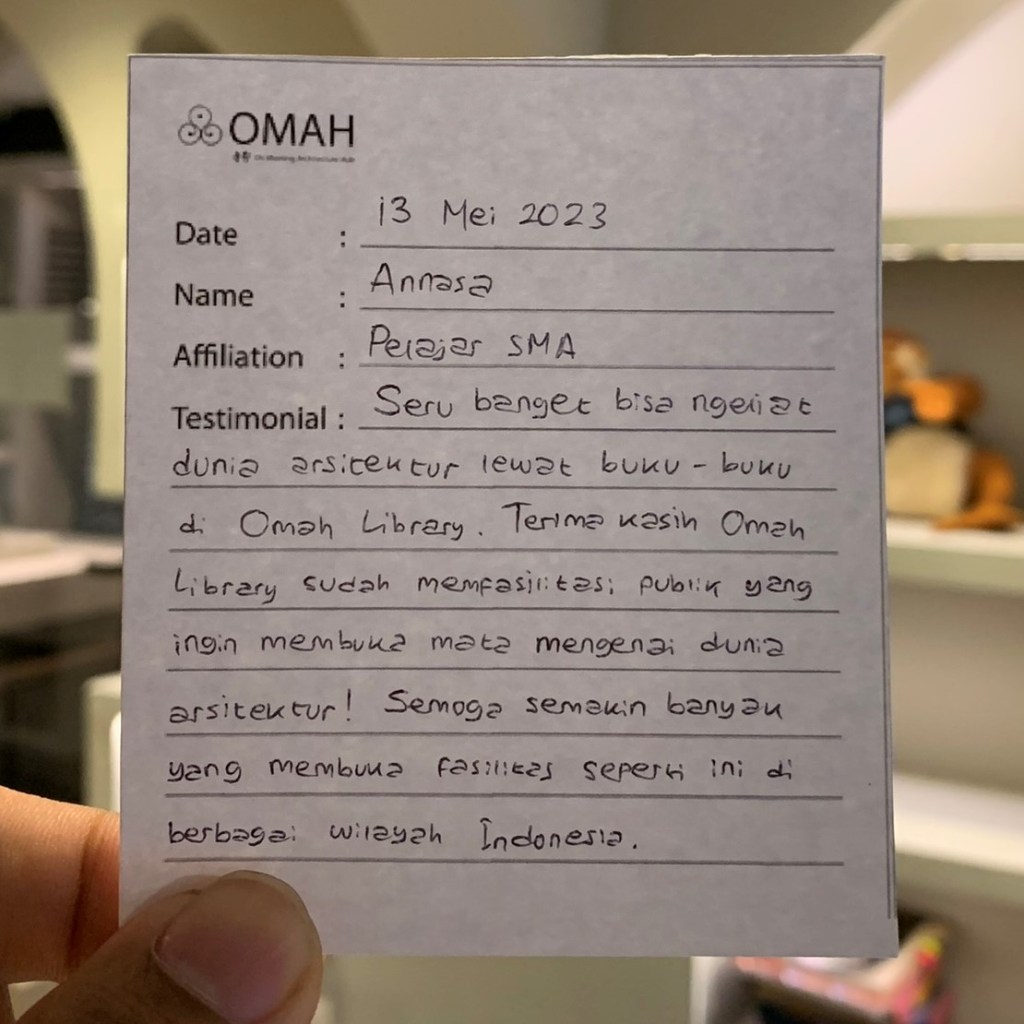 OMAH
Date : 13 Mei 2023
Name : Annasa
Affiliation : Pelajar SMA
Testimonial : Seru banget bisa ngeliat
dunia arsitektur lewat buku - buku
di Omah Library. Terima kasih Omah
Library sudah memfasilitasi publik yang
ingin membuka mata mengenai dunia
arsitektur! Semoga semakin banyak
yang membuka fasilitas seperti ini di
berbagai wilayah Indonesia.